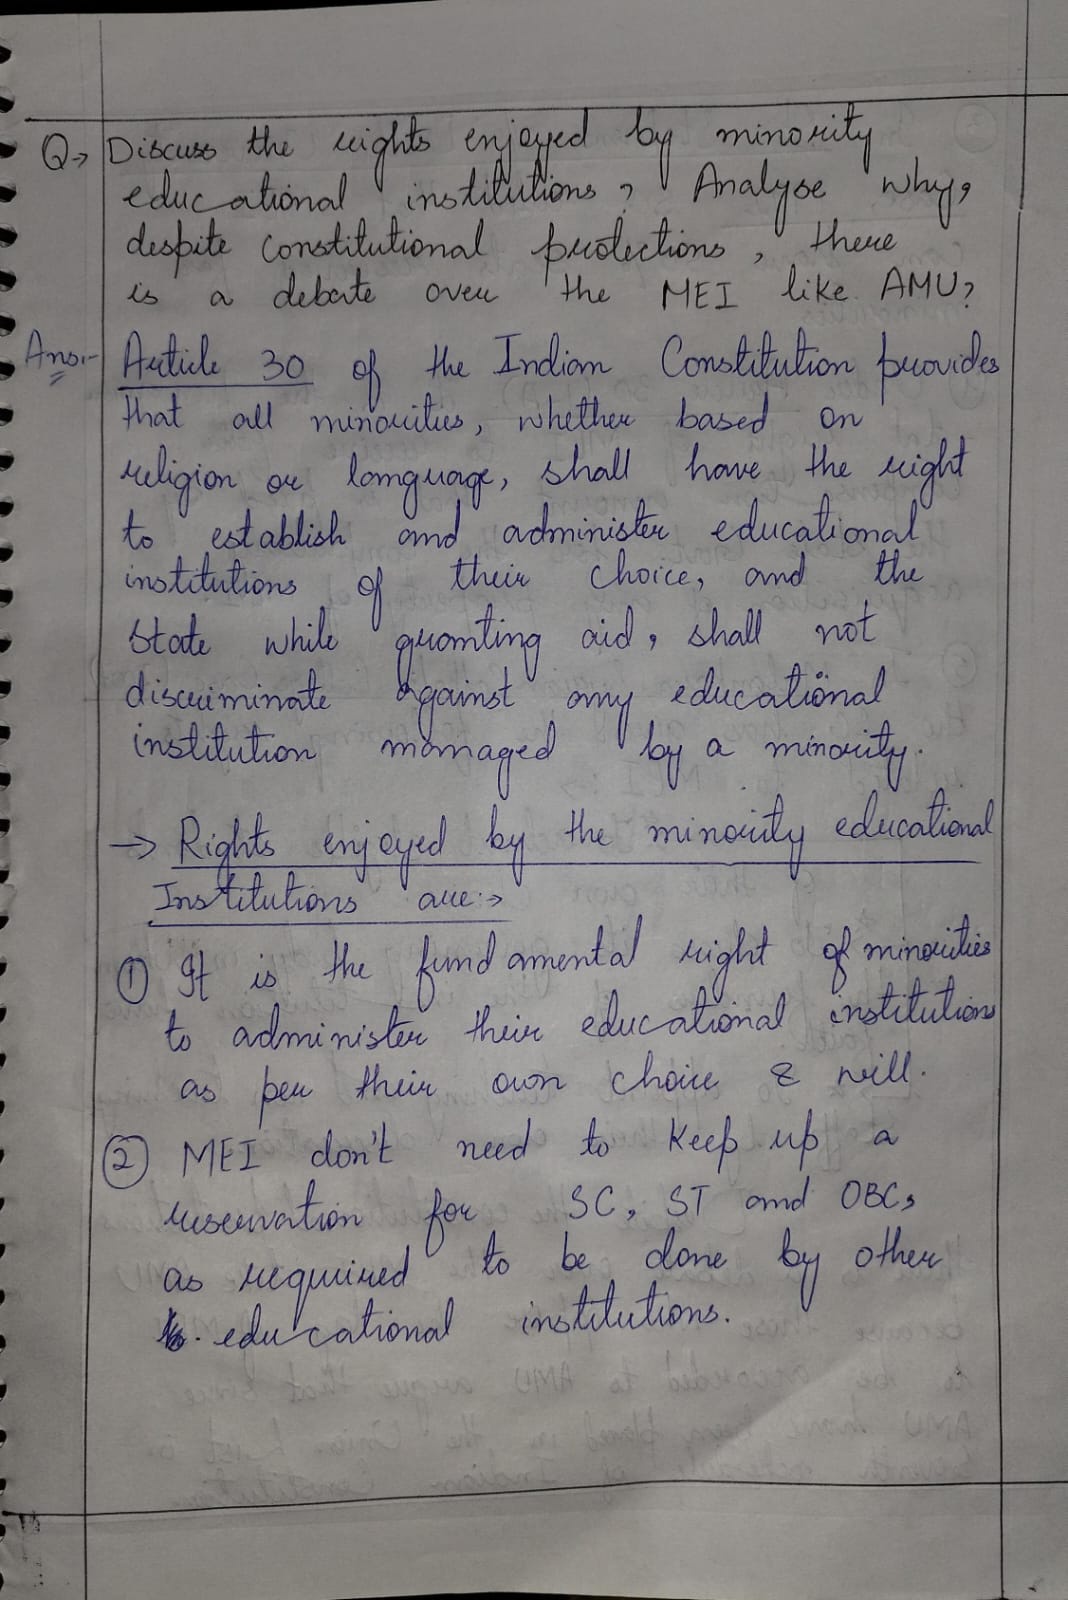 Q→ Discuss the rights enjoyed by minority
educational institutions? Analyse why,
despite Constitutional protections, there
is a debate over the MEI like AMU?
Ans:- Article 30 of the Indian Constitution provides
that all minorities, whether based on
religion or language, shall have the right
to establish and administer educational
institutions of their choice, and the
State while granting aid, shall not
discriminate against any educational
institution managed by a minority.
→ Rights enjoyed by the minority educational
Institutions are:→
① It is the fundamental right of minorities
to administer their educational institutions
as per their own choice & will.
② MEI don't need to keep up a
reservation for SC, ST and OBC,
as required to be done by other
educational institutions.